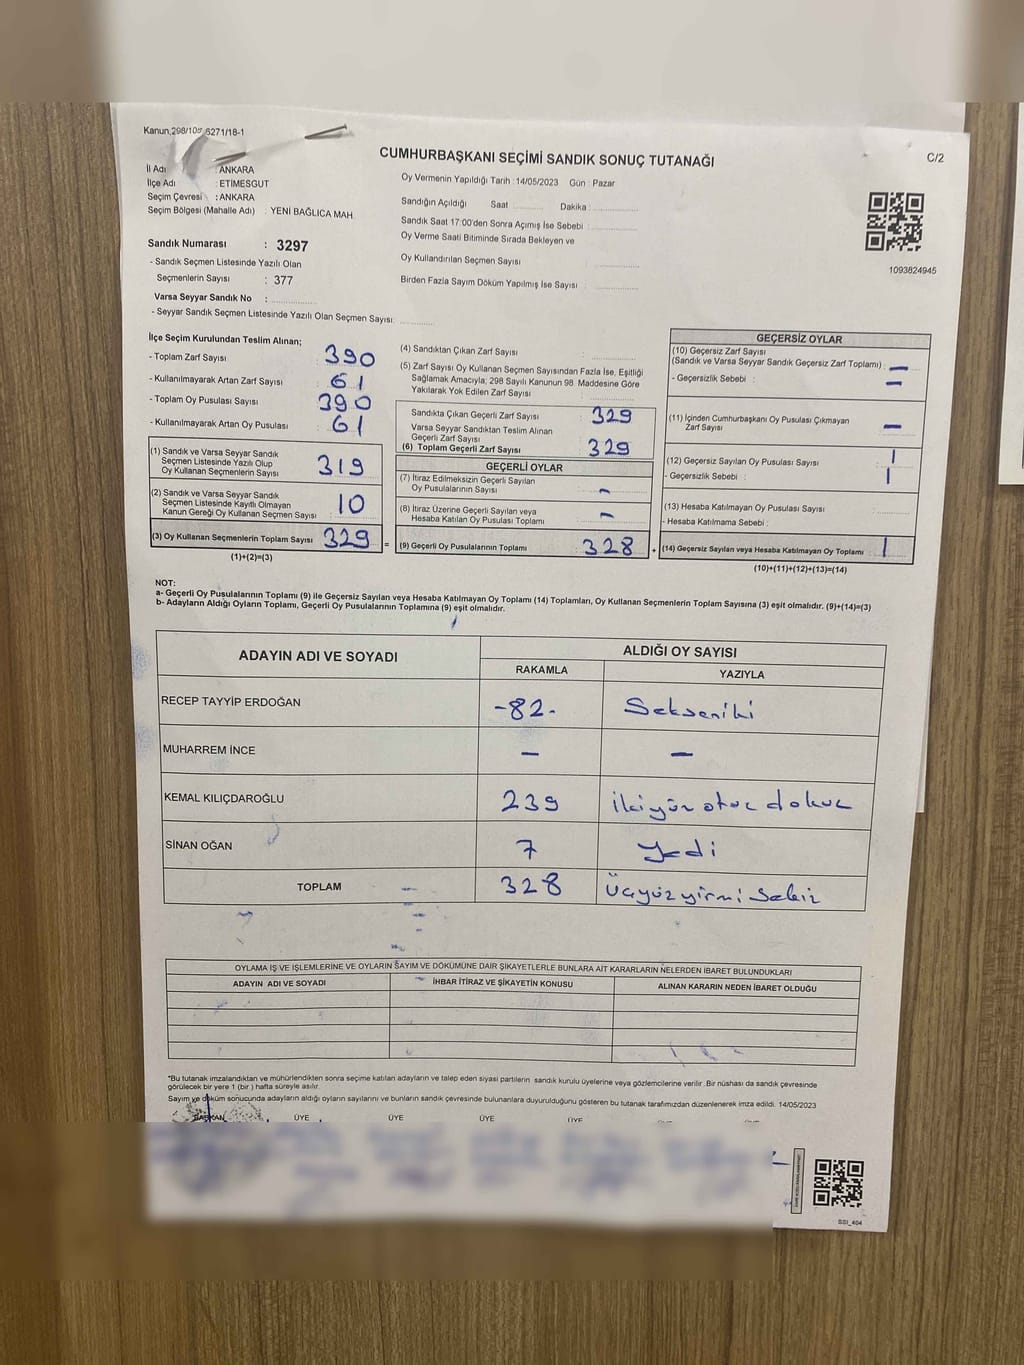 Kanun,298/105 6271/18-1
CUMHURBAŞKANI SEÇİMİ SANDIK SONUÇ TUTANAĞI
C/2
İl Adı : ANKARA
İlçe Adı : ETİMESGUT
Seçim Çevresi : ANKARA
Seçim Bölgesi (Mahalle Adı) : YENİ BAĞLICA MAH.
Oy Vermenin Yapıldığı Tarih : 14/05/2023 Gün : Pazar
Sandığın Açıldığı Saat ............ Dakika : ............
Sandık Saat 17:00'den Sonra Açımış İse Sebebi : ............
Oy Verme Saati Bitiminde Sırada Bekleyen ve
Oy Kullandırılan Seçmen Sayısı ............
Birden Fazla Sayım Döküm Yapılmış İse Sayısı : ............
1093824945
Sandık Numarası : 3297
- Sandık Seçmen Listesinde Yazılı Olan
Seçmenlerin Sayısı : 377
Varsa Seyyar Sandık No : ............
- Seyyar Sandık Seçmen Listesinde Yazılı Olan Seçmen Sayısı: ............
İlçe Seçim Kurulundan Teslim Alınan;
- Toplam Zarf Sayısı 390
- Kullanılmayarak Artan Zarf Sayısı 61
- Toplam Oy Pusulası Sayısı 390
- Kullanılmayarak Artan Oy Pusulası 61
(1) Sandık ve Varsa Seyyar Sandık
Seçmen Listesinde Yazılı Olup
Oy Kullanan Seçmenlerin Sayısı 319
(2) Sandık ve Varsa Seyyar Sandık
Seçmen Listesinde Kayıtlı Olmayan
Kanun Gereği Oy Kullanan Seçmen Sayısı 10
(3) Oy Kullanan Seçmenlerin Toplam Sayısı 329 =
(1)+(2)=(3)
(4) Sandıktan Çıkan Zarf Sayısı : ............
(5) Zarf Sayısı Oy Kullanan Seçmen Sayısından Fazla İse, Eşitliği
Sağlamak Amacıyla; 298 Sayılı Kanunun 98. Maddesine Göre
Yakılarak Yok Edilen Zarf Sayısı : ............
Sandıkta Çıkan Geçerli Zarf Sayısı : 329
Varsa Seyyar Sandıktan Teslim Alınan
Geçerli Zarf Sayısı
(6) Toplam Geçerli Zarf Sayısı : 329
GEÇERLİ OYLAR
(7) İtiraz Edilmeksizin Geçerli Sayılan
Oy Pusulalarının Sayısı : -
(8) İtiraz Üzerine Geçerli Sayılan veya
Hesaba Katılan Oy Pusulası Toplamı : -
(9) Geçerli Oy Pusulalarının Toplamı : 328 +
GEÇERSİZ OYLAR
(10) Geçersiz Zarf Sayısı
(Sandık ve Varsa Seyyar Sandık Geçersiz Zarf Toplamı) : -
- Geçersizlik Sebebi : -
(11) İçinden Cumhurbaşkanı Oy Pusulası Çıkmayan
Zarf Sayısı -
(12) Geçersiz Sayılan Oy Pusulası Sayısı : 1
- Geçersizlik Sebebi : 1
(13) Hesaba Katılmayan Oy Pusulası Sayısı : ............
- Hesaba Katılmama Sebebi :
(14) Geçersiz Sayılan veya Hesaba Katılmayan Oy Toplamı : 1
(10)+(11)+(12)+(13)=(14)
NOT:
a- Geçerli Oy Pusulalarının Toplamı (9) ile Geçersiz Sayılan veya Hesaba Katılmayan Oy Toplamı (14) Toplamları, Oy Kullanan Seçmenlerin Toplam Sayısına (3) eşit olmalıdır. (9)+(14)=(3)
b- Adayların Aldığı Oyların Toplamı, Geçerli Oy Pusulalarının Toplamına (9) eşit olmalıdır.
ADAYIN ADI VE SOYADI
ALDIĞI OY SAYISI
RAKAMLA YAZIYLA
RECEP TAYYİP ERDOĞAN -82- Sekseniki
MUHARREM İNCE - -
KEMAL KILIÇDAROĞLU 239 İkiyüz otuz dokuz
SİNAN OĞAN 7 Yedi
TOPLAM 328 Üçyüz yirmi sekiz
OYLAMA İŞ VE İŞLEMLERİNE VE OYLARIN SAYIM VE DÖKÜMÜNE DAİR ŞİKAYETLERLE BUNLARA AİT KARARLARIN NELERDEN İBARET BULUNDUKLARI
ADAYIN ADI VE SOYADI İHBAR İTİRAZ VE ŞİKAYETİN KONUSU ALINAN KARARIN NEDEN İBARET OLDUĞU
*Bu tutanak imzalandıktan ve mühürlendikten sonra seçime katılan adayların ve talep eden siyasi partilerin sandık kurulu üyelerine veya gözlemcilerine verilir. Bir nüshası da sandık çevresinde
görülecek bir yere 1 (bir ) hafta süreyle asılır.
Sayım ve döküm sonucunda adayların aldığı oyların sayılarını ve bunların sandık çevresinde bulunanlara duyurulduğunu gösteren bu tutanak tarafımızdan düzenlenerek imza edildi. 14/05/2023
BAŞKAN ÜYE ÜYE ÜYE ÜYE
SSI_404